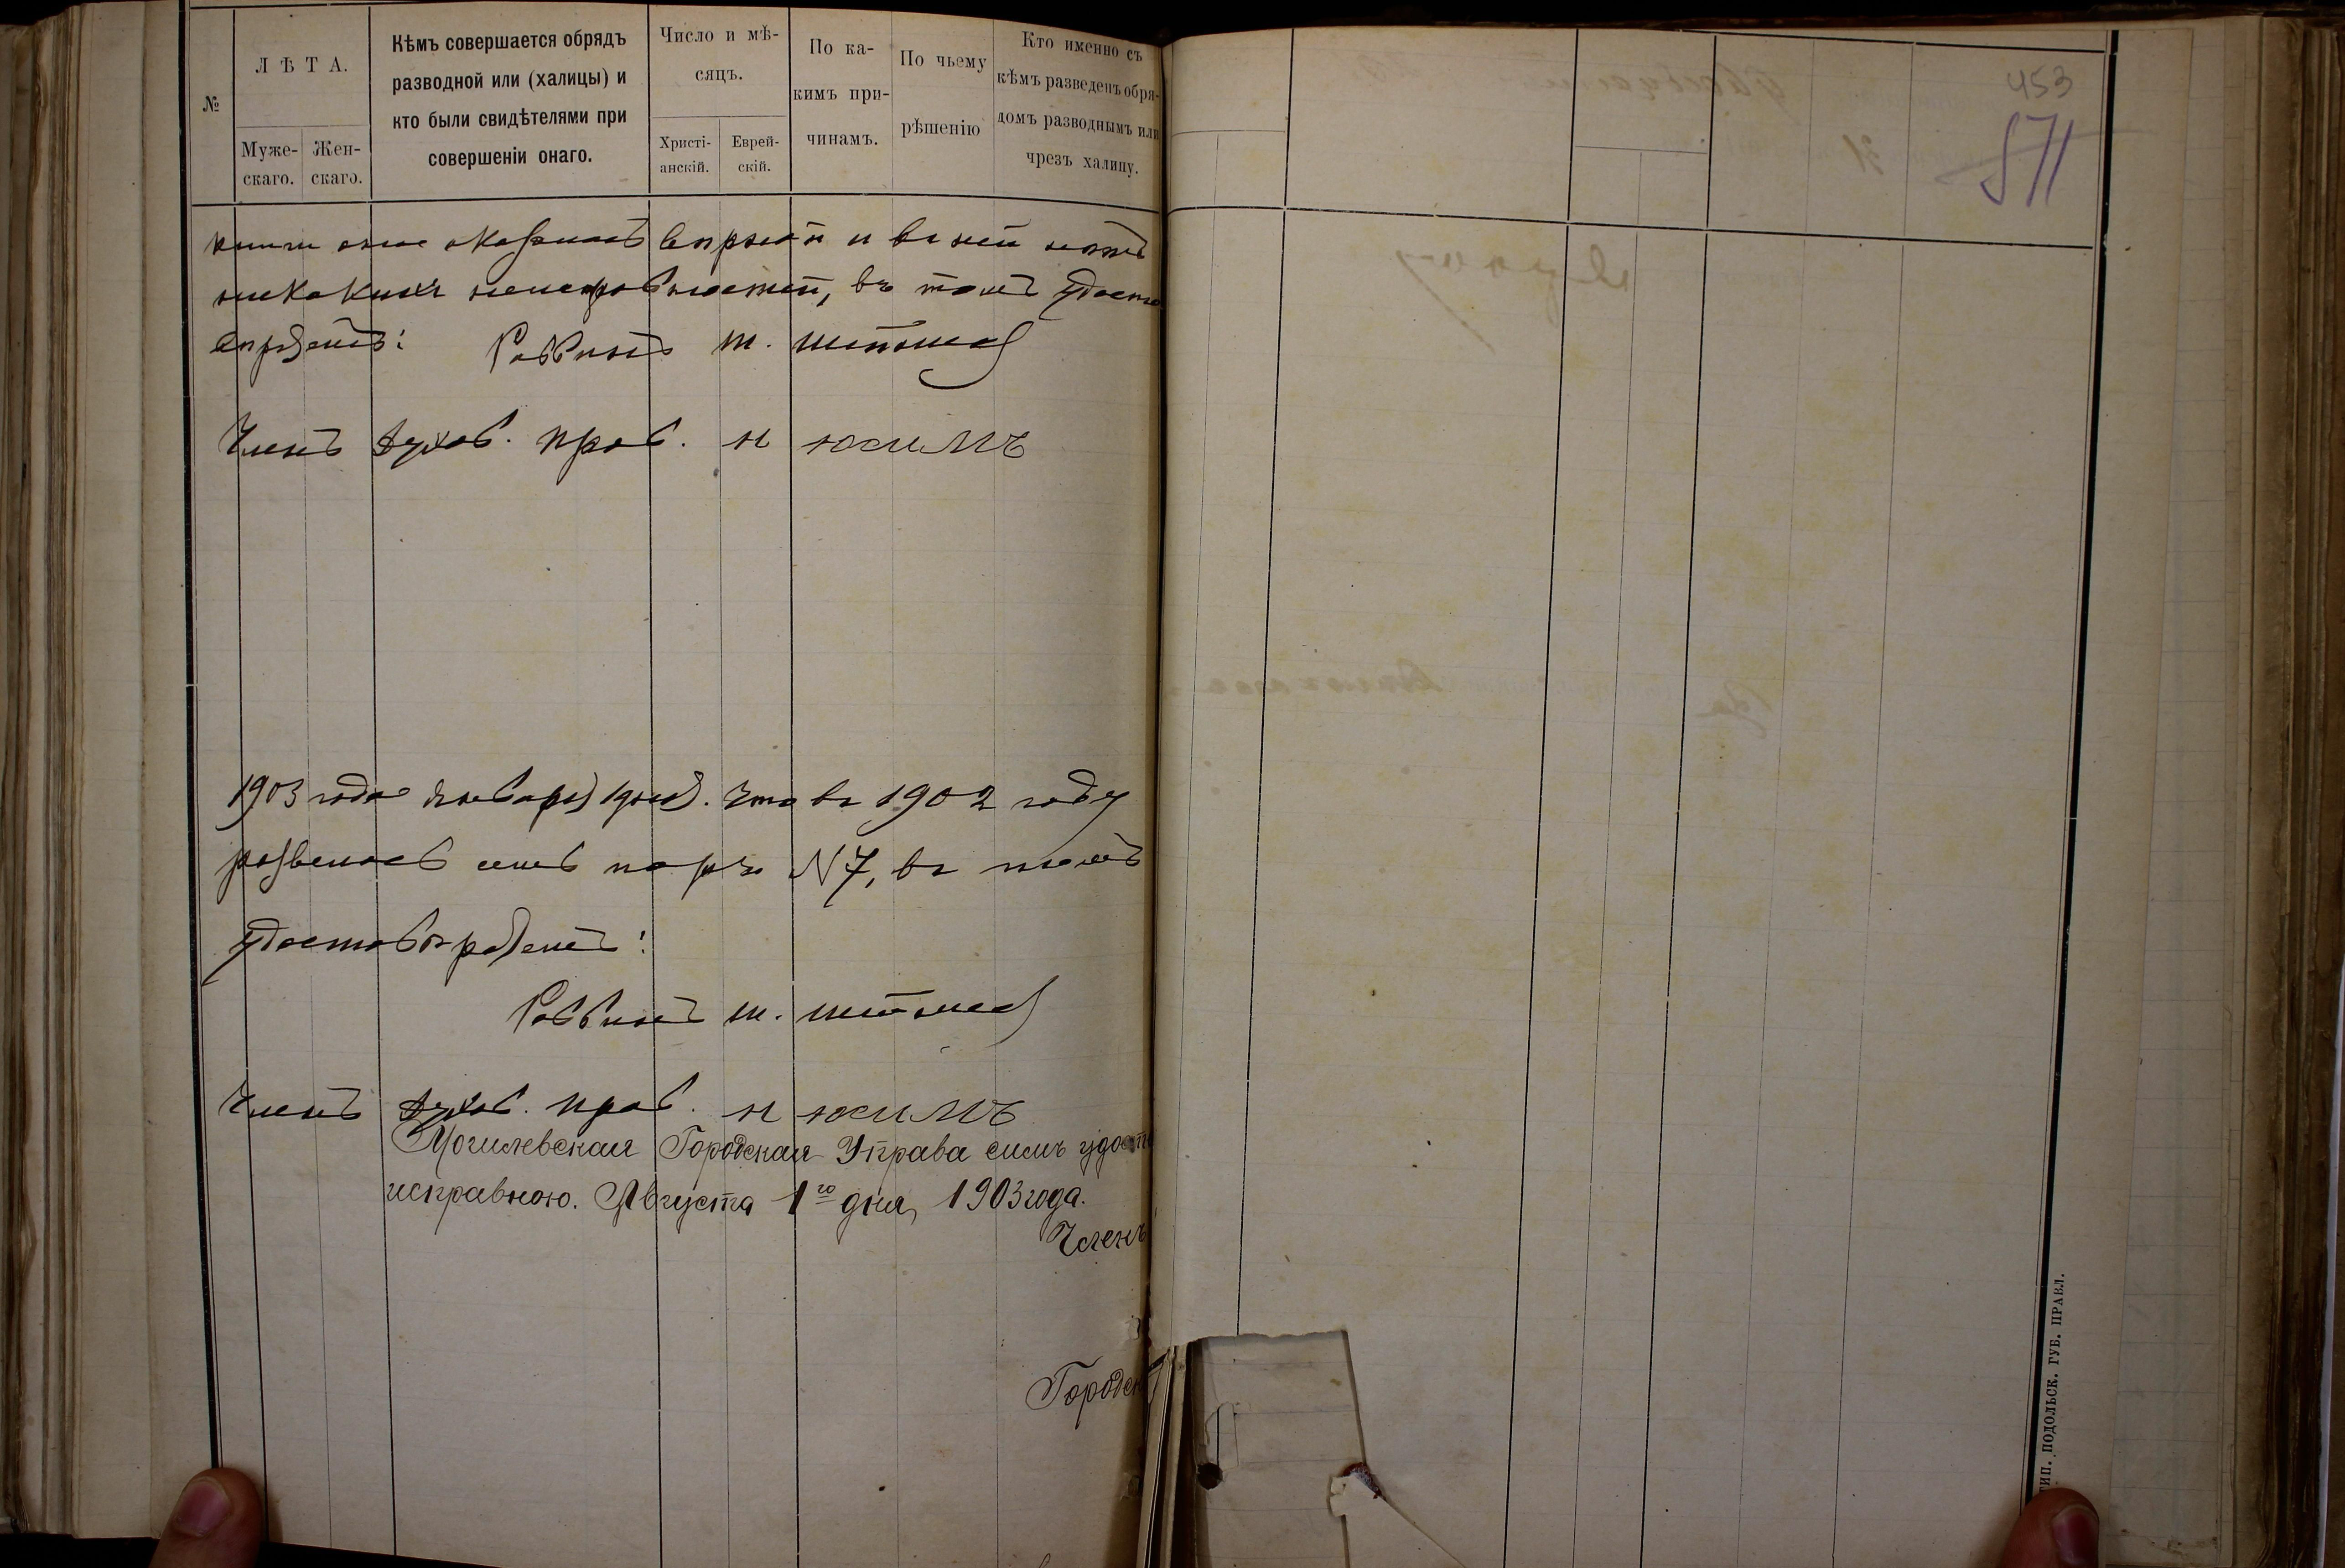 №
ЛѢТА.
Муже-
скаго.
Жен-
скаго.
Кѣмъ совершается обрядъ
разводной или (халицы) и
кто были свидѣтелями при
совершеніи онаго.
Число и мѣ-
сяцъ.
Христі-
анскій.
Еврей-
скій.
По ка-
кимъ при-
чинамъ.
По чьему
рѣшенію
Кто именно съ
кѣмъ разведенъ обря-
домъ разводнымъ или
чрезъ халицу.
книги оказалась вѣрной и въ ней нѣтъ
никакихъ неисправностей, въ томъ удосто
вѣряемъ: Раввинъ Ш.
Членъ духов. прав.
1903 года Января 1 дня. Что въ 1902 году
развелось семь паръ N 7, въ томъ
удостовѣряемъ:
Раввинъ Ш.
Членъ духов. прав.
Могилевская Городская Управа симъ удост
исправною. Августа 1го дня, 1903 года.
Членъ
Городск
453
571
ТИП. ПОДОЛЬСК. ГУБ. ПРАВЛ.